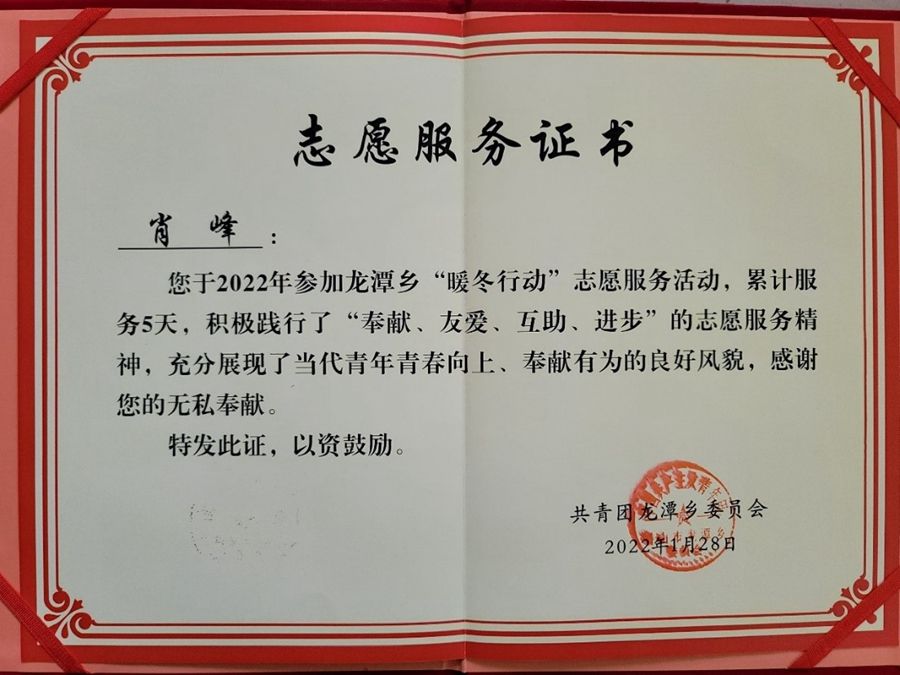 志愿服务证书
肖 峰：
您于2022年参加龙潭乡“暖冬行动”志愿服务活动，累计服
务5天，积极践行了“奉献、友爱、互助、进步”的志愿服务精
神，充分展现了当代青年青春向上、奉献有为的良好风貌，感谢
您的无私奉献。
特发此证，以资鼓励。
共青团龙潭乡委员会
2022年1月28日